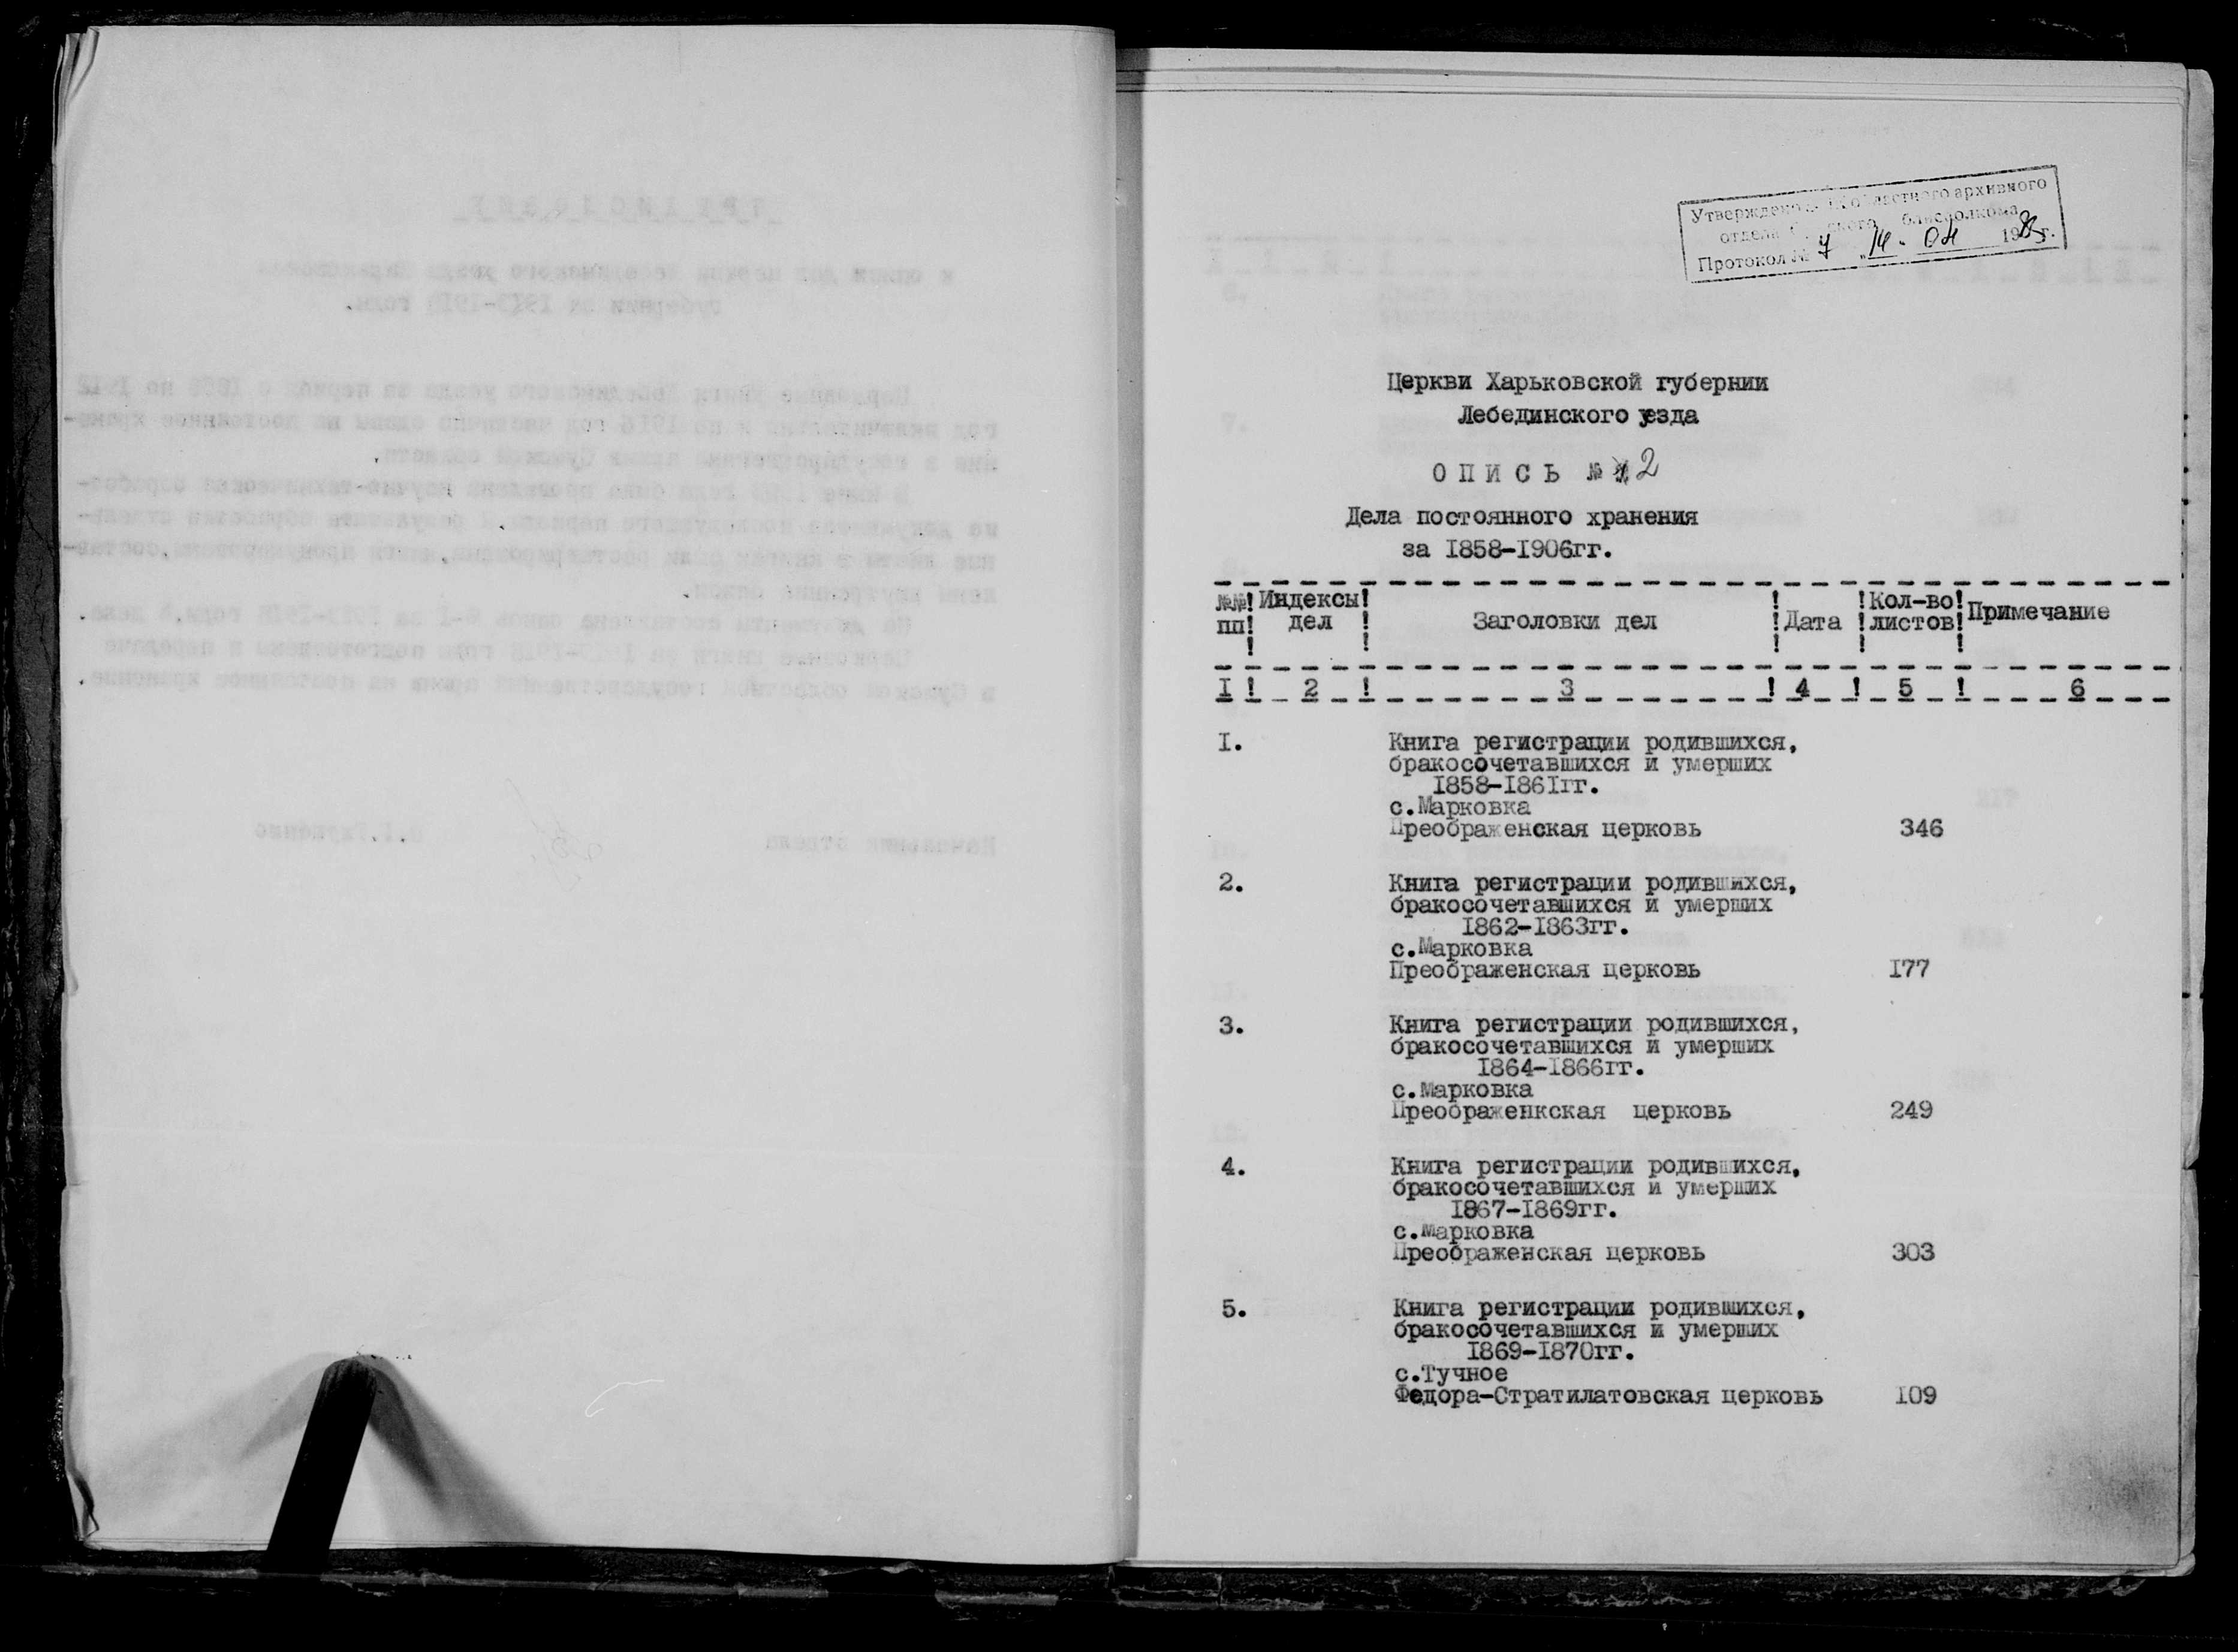 Утверждено областного архивного
отдела облисполкома
Протокол № 7 „14" 04 198 г.
Церкви Харьковской губернии
Лебединского уезда
ОПИСЬ № 2
Дела постоянного хранения
за 1858-1906гг.
№№ пп ! Индексы дел ! Заголовки дел ! Дата ! Кол-во листов ! Примечание
I ! 2 ! 3 ! 4 ! 5 ! 6
I. Книга регистрации родившихся,
бракосочетавшихся и умерших
I858-I86Iгг.
с.Марковка
Преображенская церковь 346
2. Книга регистрации родившихся,
бракосочетавшихся и умерших
I862-I863гг.
с.Марковка
Преображенская церковь I77
3. Книга регистрации родившихся,
бракосочетавшихся и умерших
I864-I866гг.
с.Марковка
Преображенкская церковь 249
4. Книга регистрации родившихся,
бракосочетавшихся и умерших
I867-I869гг.
с.Марковка
Преображенская церковь 303
5. Книга регистрации родившихся,
бракосочетавшихся и умерших
I869-I870гг.
с.Тучное
Федора-Стратилатовская церковь I09